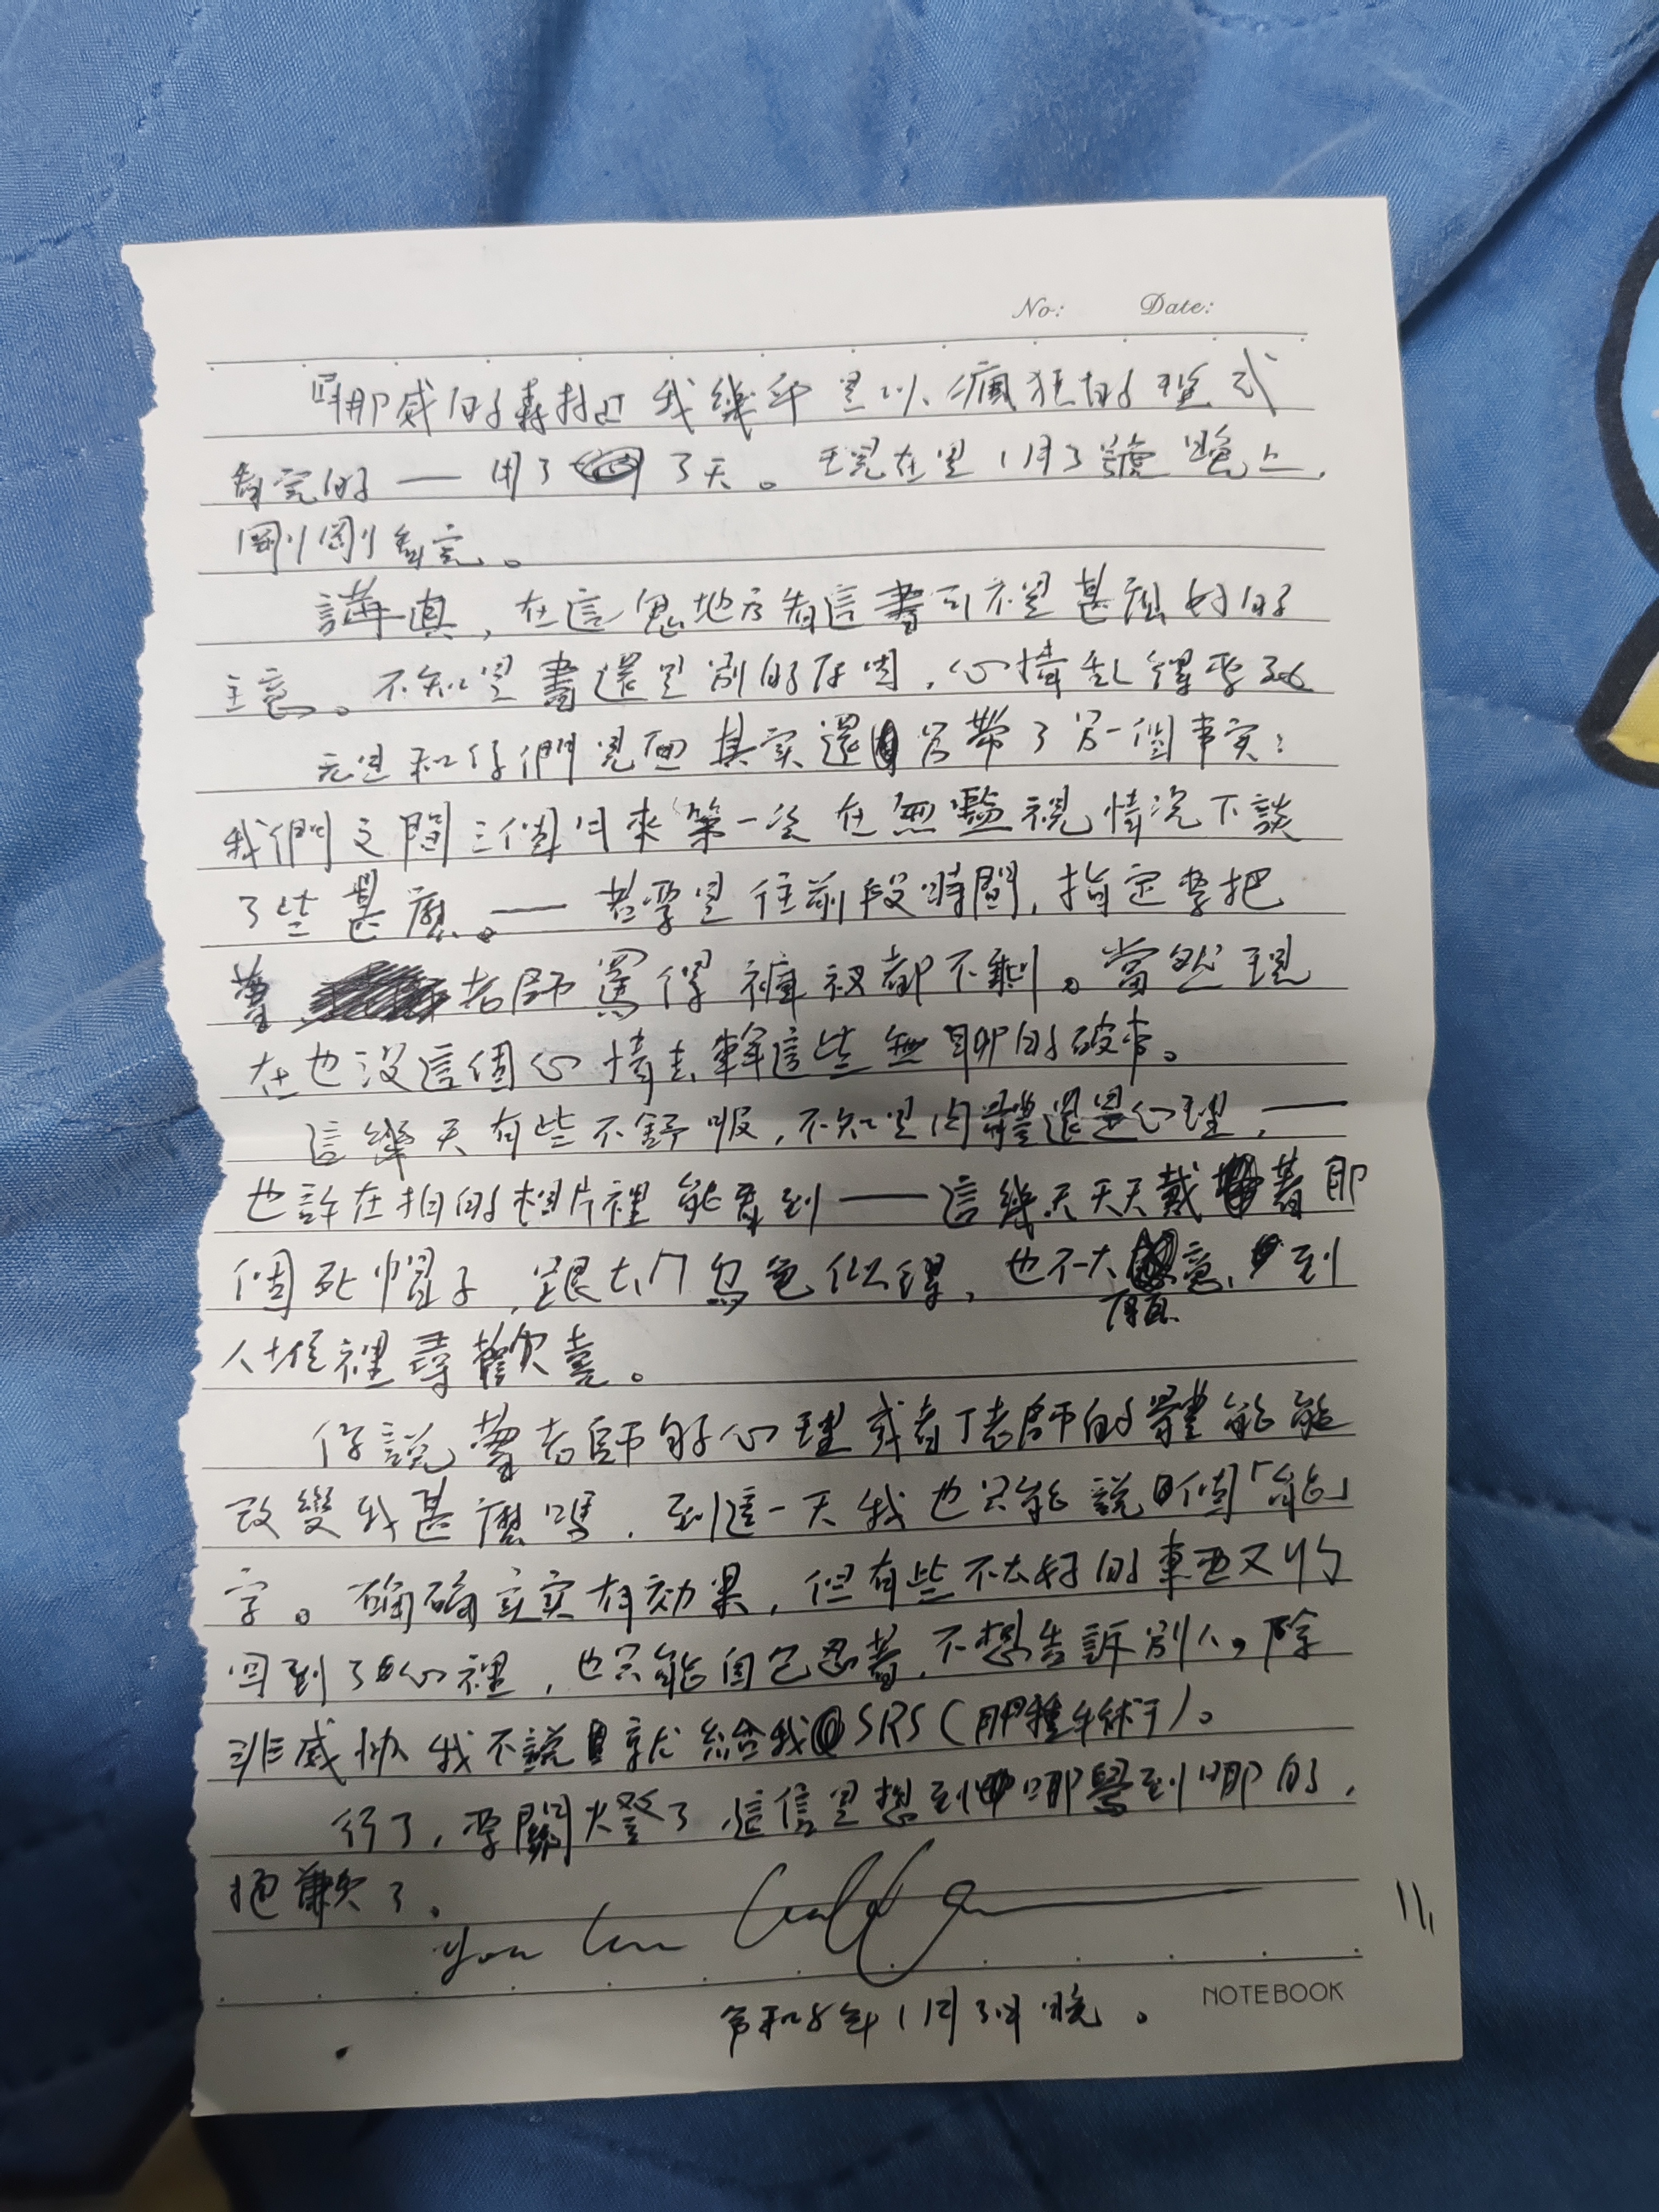 No: Date:
『挪威的森林』我幾乎是以瘋狂的程式
看完的——用了3天。現在是1月3號晚上，
剛剛看完。
講真，在這鬼地方看這書可不是甚麼好的
主意。不知是書還是別的原因，心情乱得要死
元旦和你們見面其實還另帶了另一個事實：
我們之間三個月來第一次在無監視情況下談
了些甚麼。——若要是往前段時間，指定要把
老師罵得褲衩都不剩。當然現
在也沒這個心情去幹這些無聊的破事。
這幾天有些不舒服，不知是肉體還是心理，——
也許在拍的相片裡能看到——這幾天天天戴著那
個死帽子，跟七八月烏龜似得，也不大願意到
人堆裡尋歡喜。
你說 老師的心理或者丁老師的體能能
改變我甚麼嗎，到這一天我也只能說個「能」
字。确确实实有効果，但有些不太好的東西又收
回到了心裡，也只能自己忍著，不想告訴別人。除
非威脅我不說就給我SRS（肿瘤手術）。
行了，要關火燈了，這信是想到哪寫到哪的，
抱歉了。
令和8年1月3日晚。
NOTEBOOK